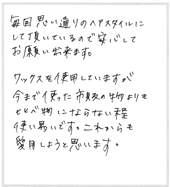 毎回思い通りのヘアスタイルに
して頂いているので安心して
お願い出来ます。
ワックスを使用していますが
今まで使った市販の物よりも
比べ物にならない程
使い易いです。これからも
愛用しようと思います。